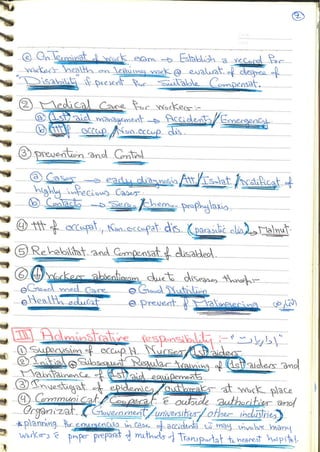 7
Ⓒ On Terminat. of work exam → Establish a record for
worker's health on leaving work @ evaluat. of degree of
Disability if present for suitable Compensat.
② Medical Care for workers:-
ⓐ 1st aid management → Accidents / Emergency
ⓑ ttt occup / Non.occup. dis.
③ prevention and Control
ⓐ Cases → early diagnosis / ttt / Isolat / Notificat of
highly infectious Cases
ⓑ Contacts → Sero / chemo prophylaxis.
④ ttt of occupat, Non.occupat dis. (parasitic dis) → Malnut.
⑤ Rehabilitat and Compensat of disabled.
⑥ ↓ Worker absenteeism due to diseases through:-
Good med Care Good Nutrition
Health educat prevent of Malingering
III Administrative responsibility :- "إداريات"
① Supervision of occup H. Nurses / 1st aiders
② Initial @ Subsequent regular training of (1st aiders and
Maintainence of 1st aid equipements
③ Investigat of epidemic / outbreaks at work place
④ Communicat / Cooperat. c̄ outside authorities and
Organizat. (Government / universities / other industries)
planning for emergencies in case of accidents may involve many
workers c̄ proper preparat of methods of Transportat to nearest hospital.